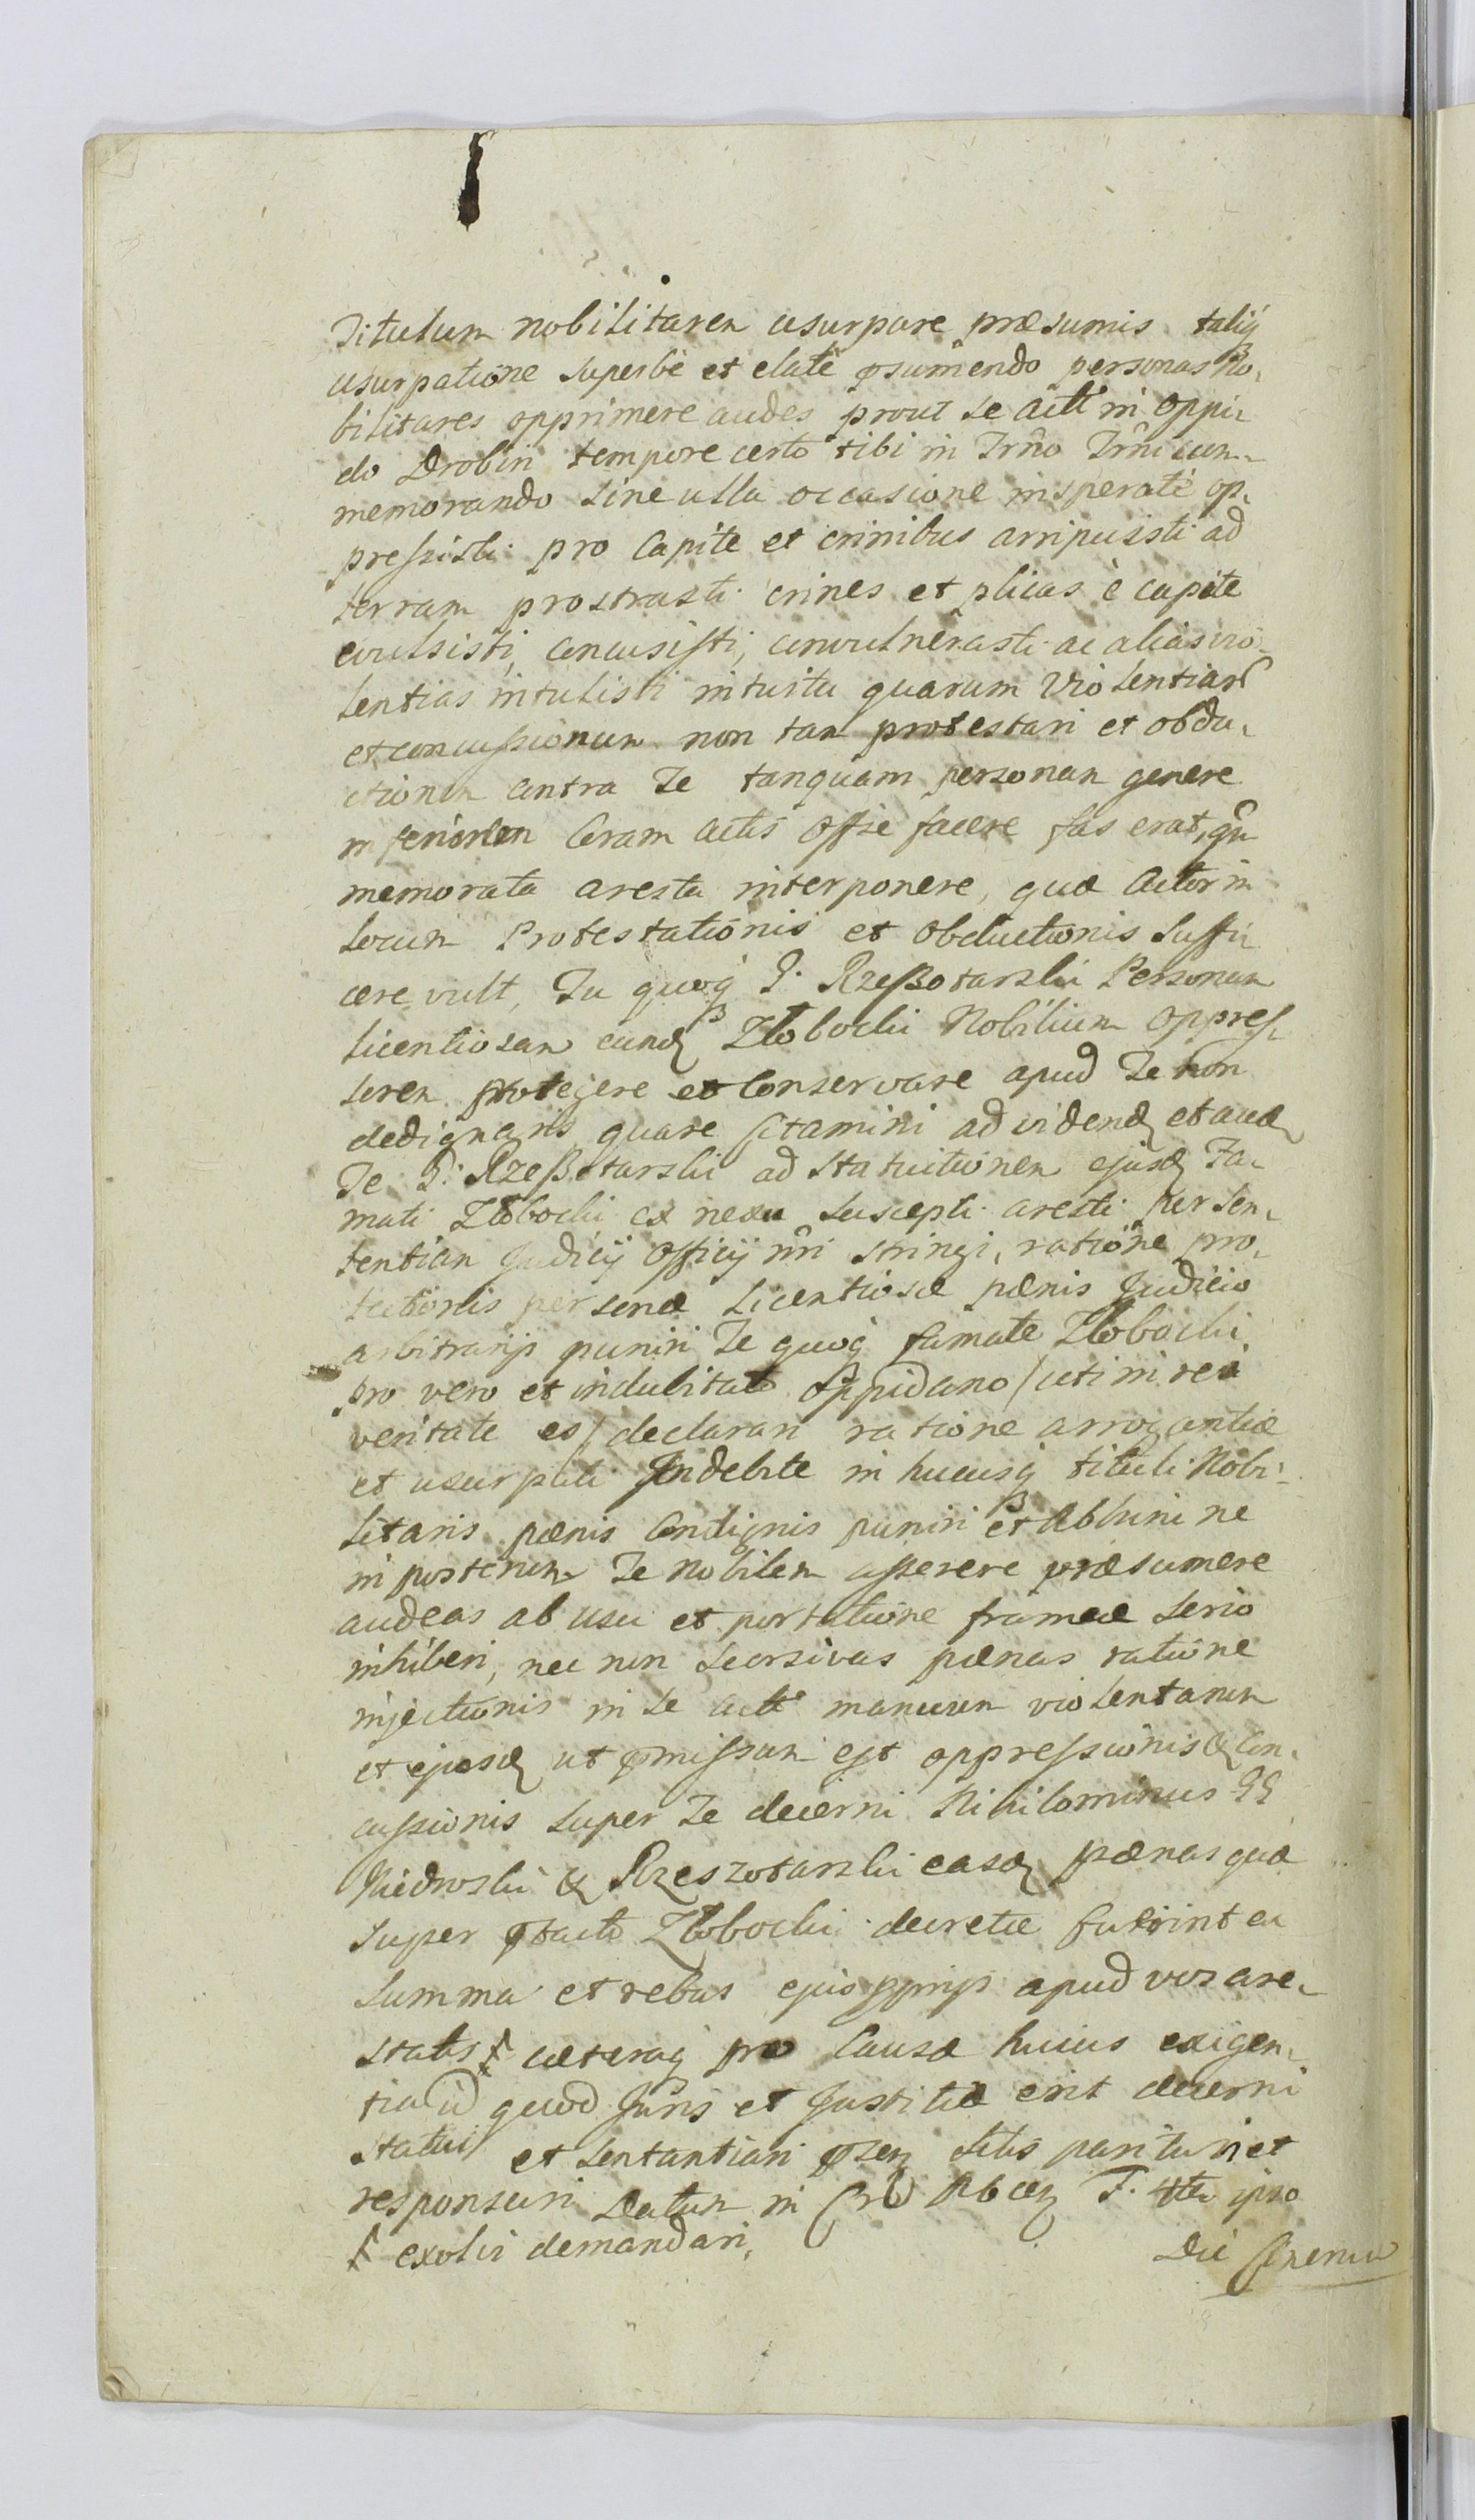 Titulum nobilitarem usurpare præsumis taliq
usurpatione superbè et elatè psumendo personas No,
bilitares opprimere audes prout se actt in oppi,
do Drobin tempore certo tibi in Trño Trñi com,
memorando sine ulla occasione insperatè op,
pressisti pro Capite et crinibus arripuisti ad
terram prostrasti crines et plicas è capite
evulsisti, concusisti, convulnerasti ac alias vio,
lentias intulisti intuitu quarum Violentiar
et concussionum non tam protestari et obdu,
ctionem contra Te tanquam personam genere
inferiorem Coram Actis Offie facere fas erat, qm
memorata aresta interponere, quæ Actor in
locum Protestationis et Obductionis suffi
cere vult, Tu quoq G. Rzeszotarski Personam
licentiosam eund Złobocki Nobilium oppres,
sorem protegere et Conservare apud Te non
dedignaris quare citamini ad videnđ et auđ
Te G. Rzeszotarski ad statuitionem ejusđ Fa,
mati Złobocki ex nexu suscepti aresti per sen,
tentiam Judicij Officij nri stringi, ratione pro,
tectionis personæ licentiosæ pænis Judicio
arbitrarijs puniri Te quoq famate Złobocki
pro vero et indubitato Oppidano /uti in rei
veritate es/ declarari ratione arrogantiæ
et usurpati Indebite in hucusq tituli Nobi,
litaris pænis Condignis puniri et Abhinc ne
in posterum Te Nobilem asserere præsumere
audeas ab usu et portatione frameæ serio
inhiberi, nec non seorsivas pænas ratione
injectionis in se Actt manuum violentarum
et ejusđ ut pmissum est oppressionis & Con,
cussionis super Te decerni Nihilominus GG
& Rzeszotarski easđ pænas quæ
super ptacto Złobocki decretæ fuerint ex
summa et rebus ejus pprijs apud vos are,
statis ₰ cæteraq pro Causæ huius exigen,
tia id quod Juris et Justitiæ erit decerni
statui et sententiari psen sitis parituri et
responsuri Datum in F. 4ta ipso
₰ exolvi demandari,
Die